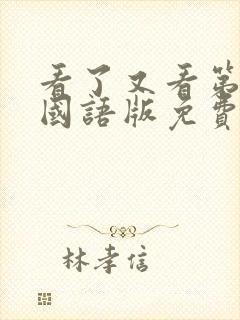 看了又看第
國語版免費
林孝信